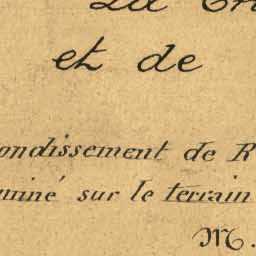 et de
ondissement de R
miné sur le terrain
M.